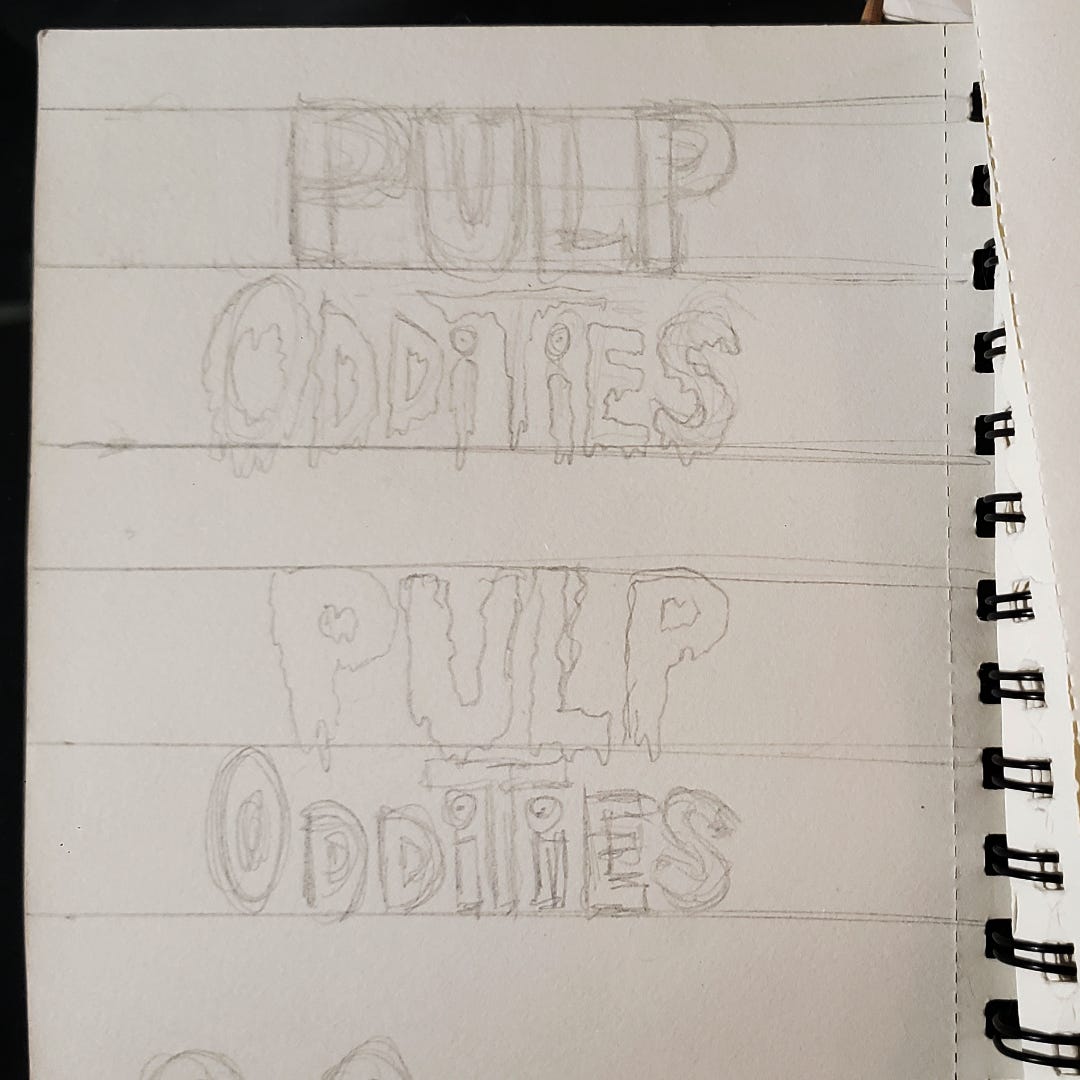 PULP
ODDiTiES
PULP
ODDiTiES